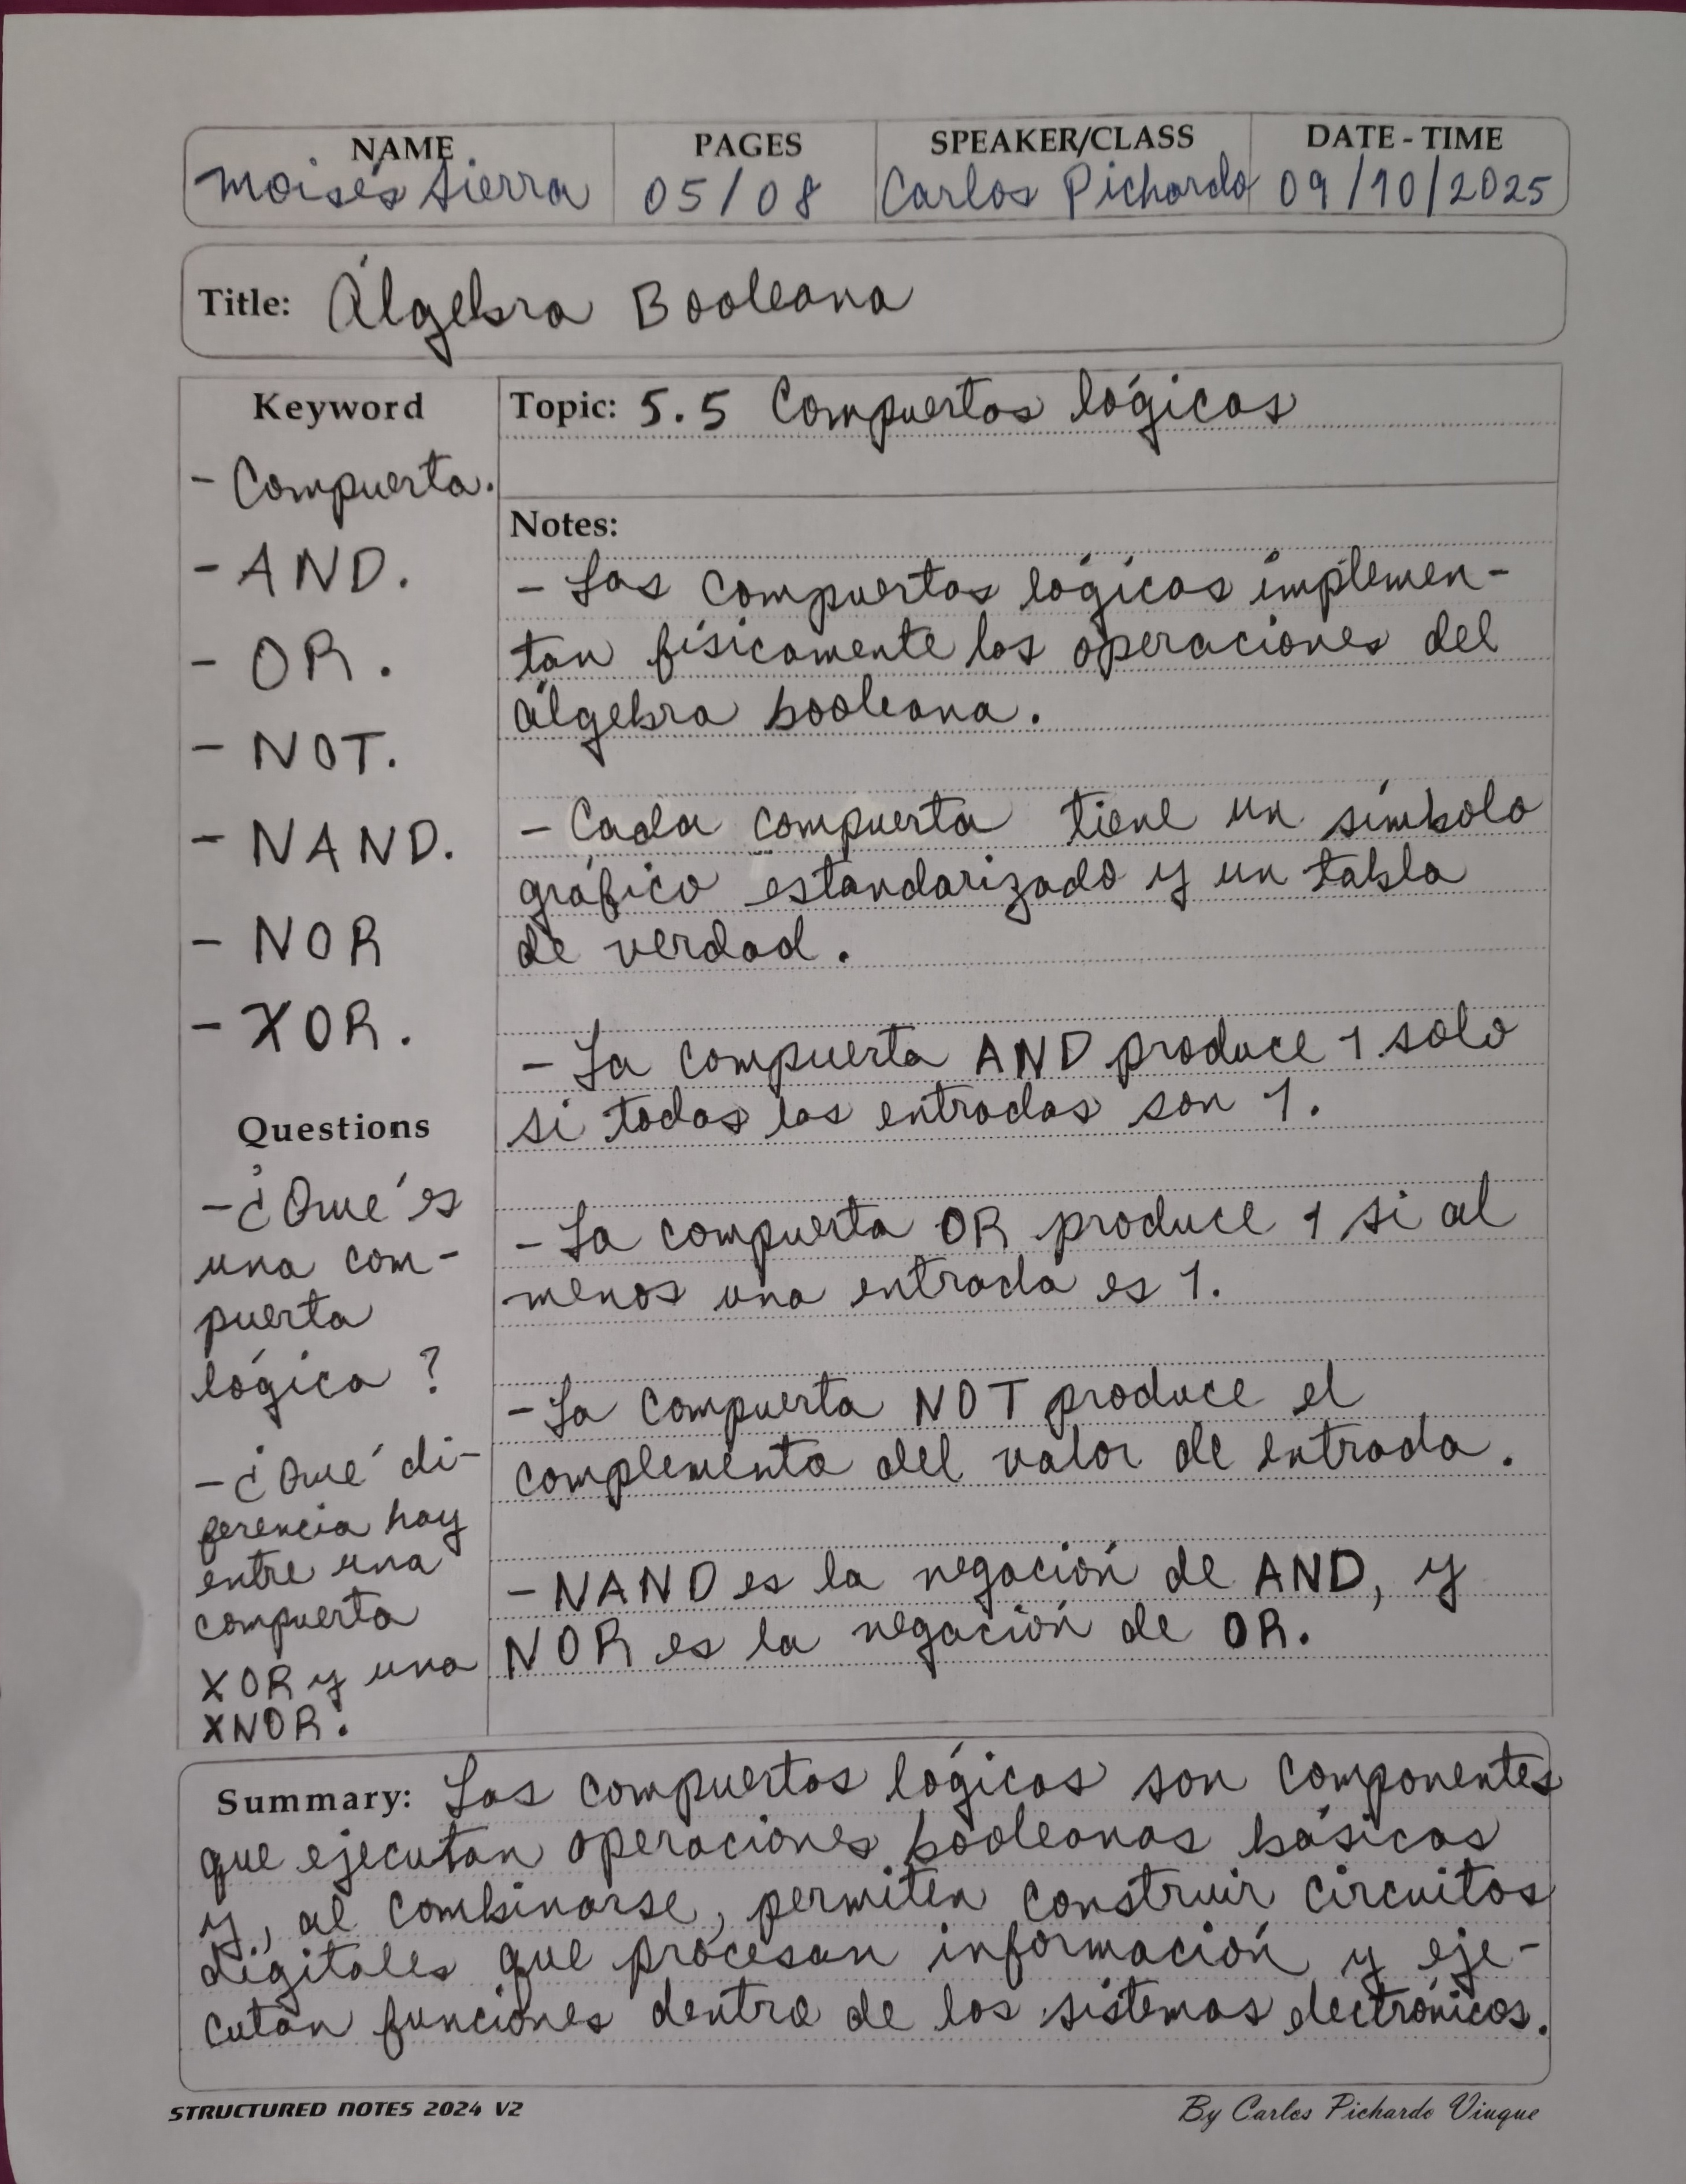 NAME PAGES SPEAKER/CLASS DATE - TIME
Moisés Sierra 05/08 Carlos Pichardo 09/10/2025
Title: Álgebra Booleana
Keyword
- Compuerta.
- AND.
- OR.
- NOT.
- NAND.
- NOR
- XOR.
Questions
- ¿Qué es
una com-
puerta
lógica?
- ¿Qué di-
ferencia hay
entre una
compuerta
XOR y una
XNOR?
Topic: 5.5 Compuertas lógicas
Notes:
- Las compuertas lógicas implemen-
tan físicamente las operaciones del
álgebra booleana.
- Cada compuerta tiene un símbolo
gráfico estandarizado y un tabla
de verdad.
- La compuerta AND produce 1 solo
si todas las entradas son 1.
- La compuerta OR produce 1 si al
menos una entrada es 1.
- La compuerta NOT produce el
complemento del valor de entrada.
- NAND es la negación de AND, y
NOR es la negación de OR.
Summary: Las compuertas lógicas son componentes
que ejecutan operaciones booleanas básicas
y, al combinarse, permiten construir circuitos
digitales que procesan información y eje-
cutan funciones dentro de los sistemas electrónicos.
STRUCTURED NOTES 2024 V2 By Carlos Pichardo Viuque